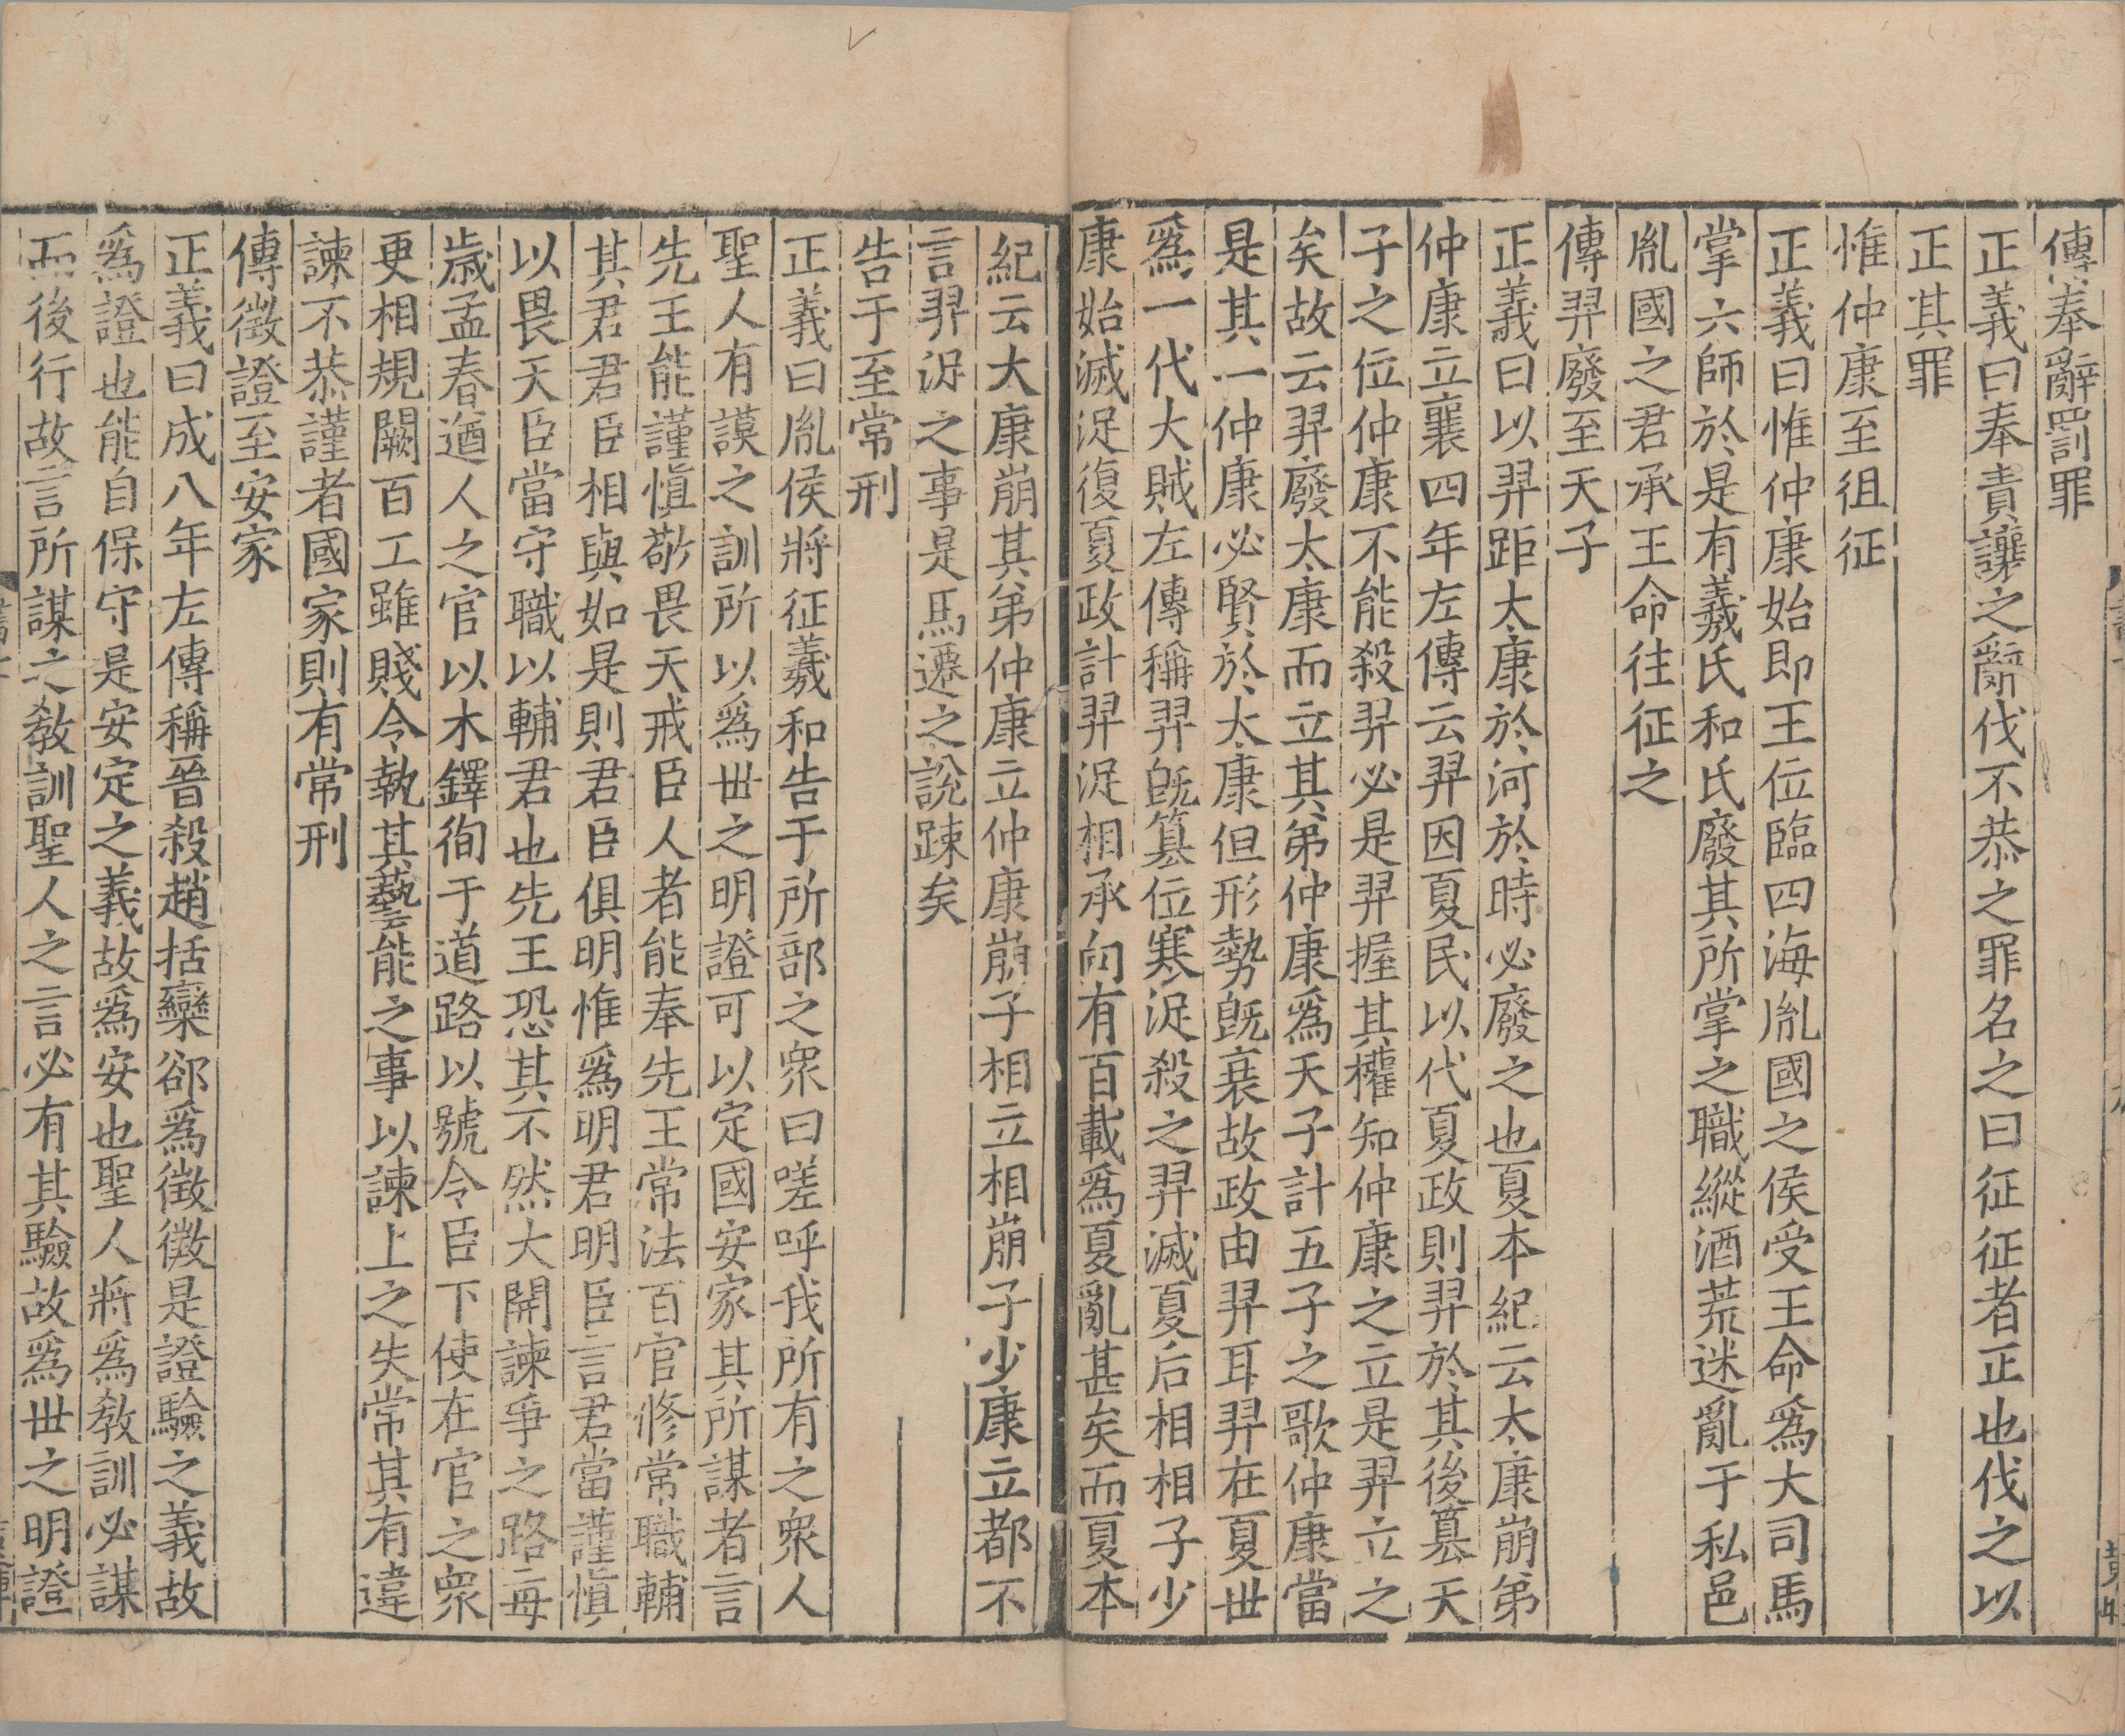 傳奉辭罰罪
正義曰奉責讓之辭伐不恭之罪名之曰征征者正也伐之以
正其罪
惟仲康至徂征
正義曰惟仲康始即王位臨四海胤國之侯受王命爲大司馬
掌六師於是有羲氏和氏廢其所掌之職縱酒荒迷亂于私邑
胤國之君承王命往征之
傳羿廢至天子
正義曰以羿距太康於河於時必廢之也夏本紀云太康崩弟
仲康立襄四年左傳云羿因夏民以代夏政則羿於其後篡天
子之位仲康不能殺羿必是羿握其權知仲康之立是羿立之
矣故云羿廢太康而立其弟仲康爲天子計五子之歌仲康當
是其一仲康必賢於太康但形勢旣衰故政由羿耳羿在夏世
爲一代大賊左傳稱羿旣篡位寒浞殺之羿滅夏后相相子少
康始滅浞復夏政計羿浞相承向有百載爲夏亂甚矣而夏本
紀云大康崩其弟仲康立仲康崩子相立相崩子少康立都不
言羿浞之事是馬遷之說踈矣
告于至常刑
正義曰胤侯將征羲和告于所部之衆曰嗟呼我所有之衆人
聖人有謨之訓所以爲世之明證可以定國安家其所謀者言
先王能謹慎敬畏天戒臣人者能奉先王常法百官修常職輔
其君君臣相與如是則君臣俱明惟爲明君明臣言君當謹慎
以畏天臣當守職以輔君也先王恐其不然大開諫爭之路每
歲孟春遒人之官以木鐸徇于道路以號令臣下使在官之衆
更相規闕百工雖賤令執其藝能之事以諫上之失常其有違
諫不恭謹者國家則有常刑
傳徵證至安家
正義曰成八年左傳稱晉殺趙括欒郤爲徵徵是證驗之義故
爲證也能自保守是安定之義故爲安也聖人將爲敎訓必謀
而後行故言所謀之敎訓聖人之言必有其驗故爲世之明證